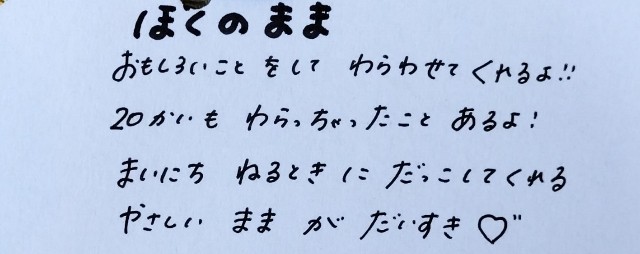 ぼくのまま
おもしろいこと をして わらわせて くれるよ!!
20かいも わらっちゃったこと あるよ!
まいにち ねるときに だっこしてくれる
やさしい まま が だいすき♡"